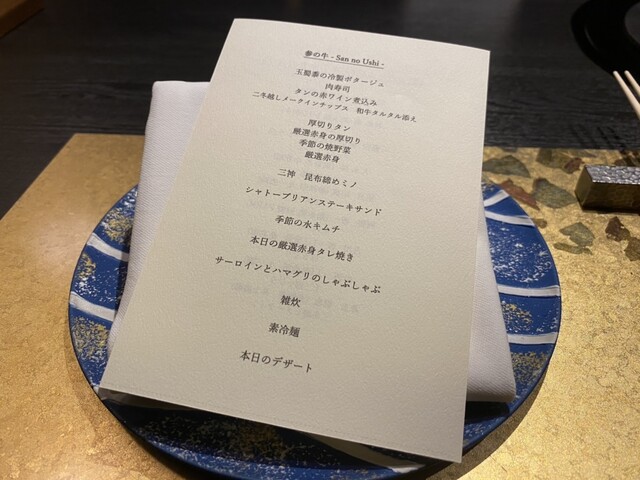 参の牛 - San no Ushi -
玉蜀黍の冷製ポタージュ
肉寿司
タンの赤ワイン煮込み
二年越しメークインチップス 和牛タルタル添え
厚切りタン
厳選赤身の厚切り
季節の焼野菜
厳選赤身
二神 昆布締めミノ
シャトーブリアンステーキサンド
季節の水キムチ
本日の厳選赤身タレ焼き
サーロインとハマグリのしゃぶしゃぶ
雑炊
素冷麺
本日のデザート